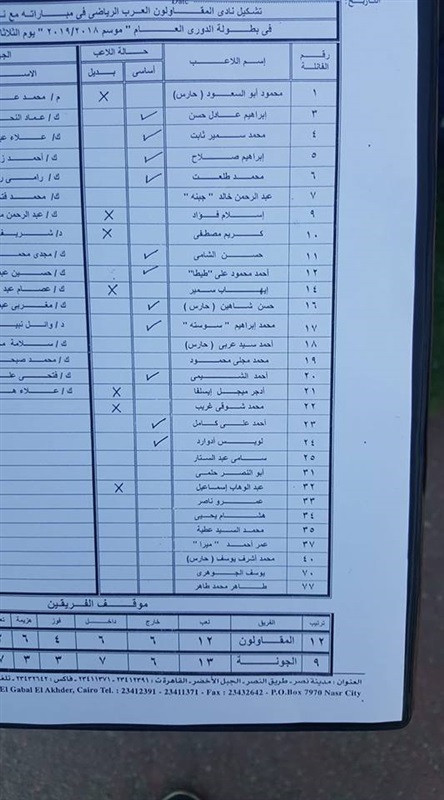 تشكيل نادى المقاولون العرب الرياضى فى مباراته مع
فى بطولة الدورى العام " موسم ٢٠١٩/٢٠١٨ " يوم الثلاثا
رقم الفانلة إسم اللاعب حالة اللاعب
أساسى بديل الاس
١ محمود أبو السعود (حارس) X م/ محمد عـ
٣ إبراهيم عادل حسن ✓ ك/ عماد النحـ
٤ محمد سمير ثابت ✓ ك/ علاء عبـ
٥ إبراهيم صلاح ✓ ك/ أحمد ز
٦ محمد طلعت ✓ ك/ رامى ر
٧ عبد الرحمن خالد " جبنه " ك/ محمد فتـ
٩ إسلام فؤاد X ك/ عبد الرحمن م
١٠ كريم مصطفى X د/ شريف
١١ حسن الشامى ✓ ك/ مجدى محمـ
١٢ أحمد محمود على "طيطا" ✓ ك/ حسين عبـ
١٤ إيهاب سمير X ك/ عصام عبد
١٦ حسن شاهين (حارس) ✓ ك/ مغربى عبـ
١٧ محمد إبراهيم " سوسته " ✓ د/ وائل نبيـ
١٨ أحمد سيد عربى (حارس) ك/ سلامة مـ
١٩ محمد مجلى محمود ك/ محمد صبحـ
٢٠ أحمد الشيمى ✓ ك/ فتحى علـ
٢١ أدجر ميجل إيسلفا X ك/ علاء هـ
٢٢ محمد شوقى غريب X
٢٣ أحمد على كامل ✓
٢٤ لويس أدوارد ✓
٢٥ سامى عبد الستار
٣١ أبو النصر حلمى
٣٢ عبد الوهاب إسماعيل X
٣٣ عمرو ناصر
٣٤ هشام يحيى
٣٥ محمد السيد عطية
٣٧ عمر أحمد " ميرا "
٤٠ محمد أشرف يوسف (حارس)
٧٠ يوسف الجوهرى
٧٧ طاهر محمد طاهر
موقف الفريقين
ترتيب الفريق لعب خارج داخل فوز هزيمة تعا
١٢ المقاولون ١٢ ٦ ٦ ٤ ٦
٩ الجونة ١٣ ٦ ٧ ٣ ٣ ٧
العنوان : مدينة نصر - طريق النصر - الجبل الأخضر - القاهرة ت : ٢٣٤١٢٣٩١ - ٢٣٤١١٣٧١ - فاكس : ٢٣٤٣٢٦٤٢
El Gabal El Akhder, Cairo Tel. : 23412391 - 23411371 - Fax : 23432642 - P.O.Box 7970 Nasr City